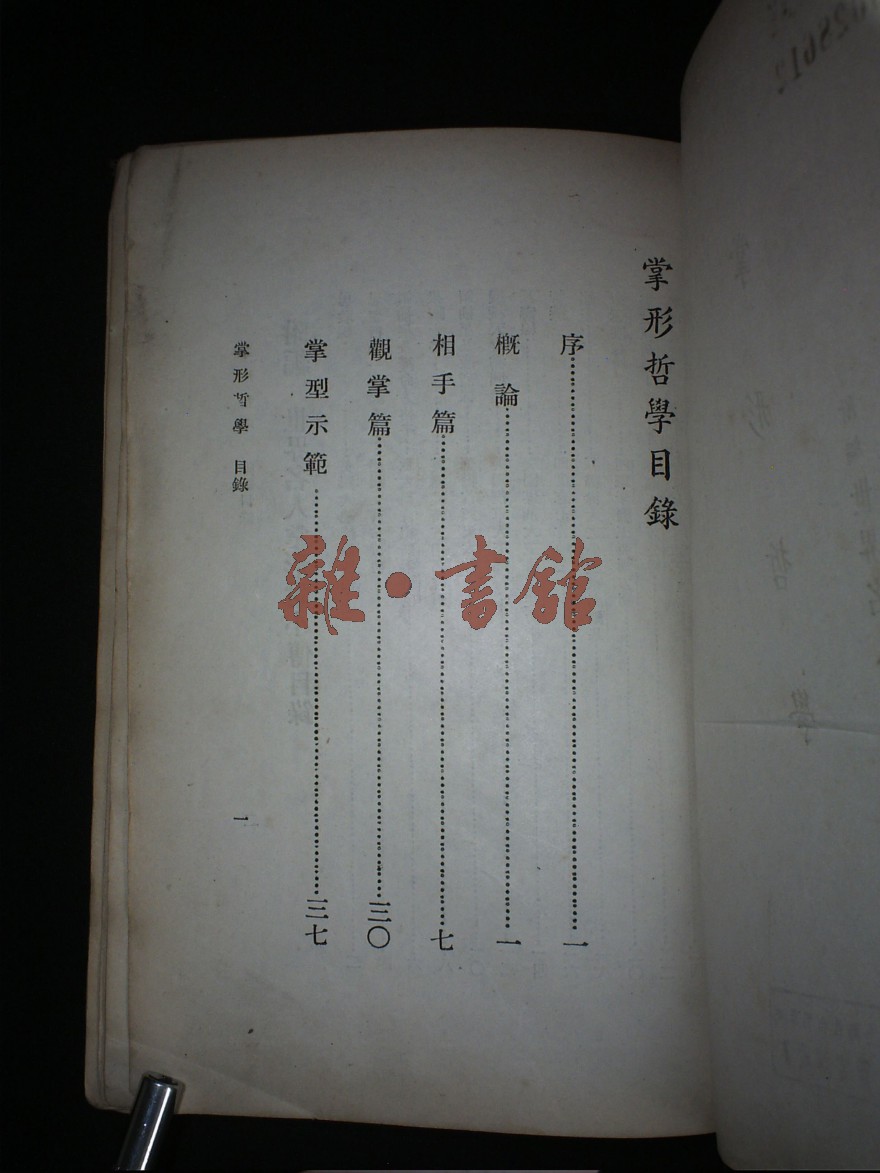 掌形哲學目錄
序……一
概論……一
相手篇……七
觀掌篇……三〇
掌型示範……三七
掌形哲學 目錄
一
雜·書館
028612